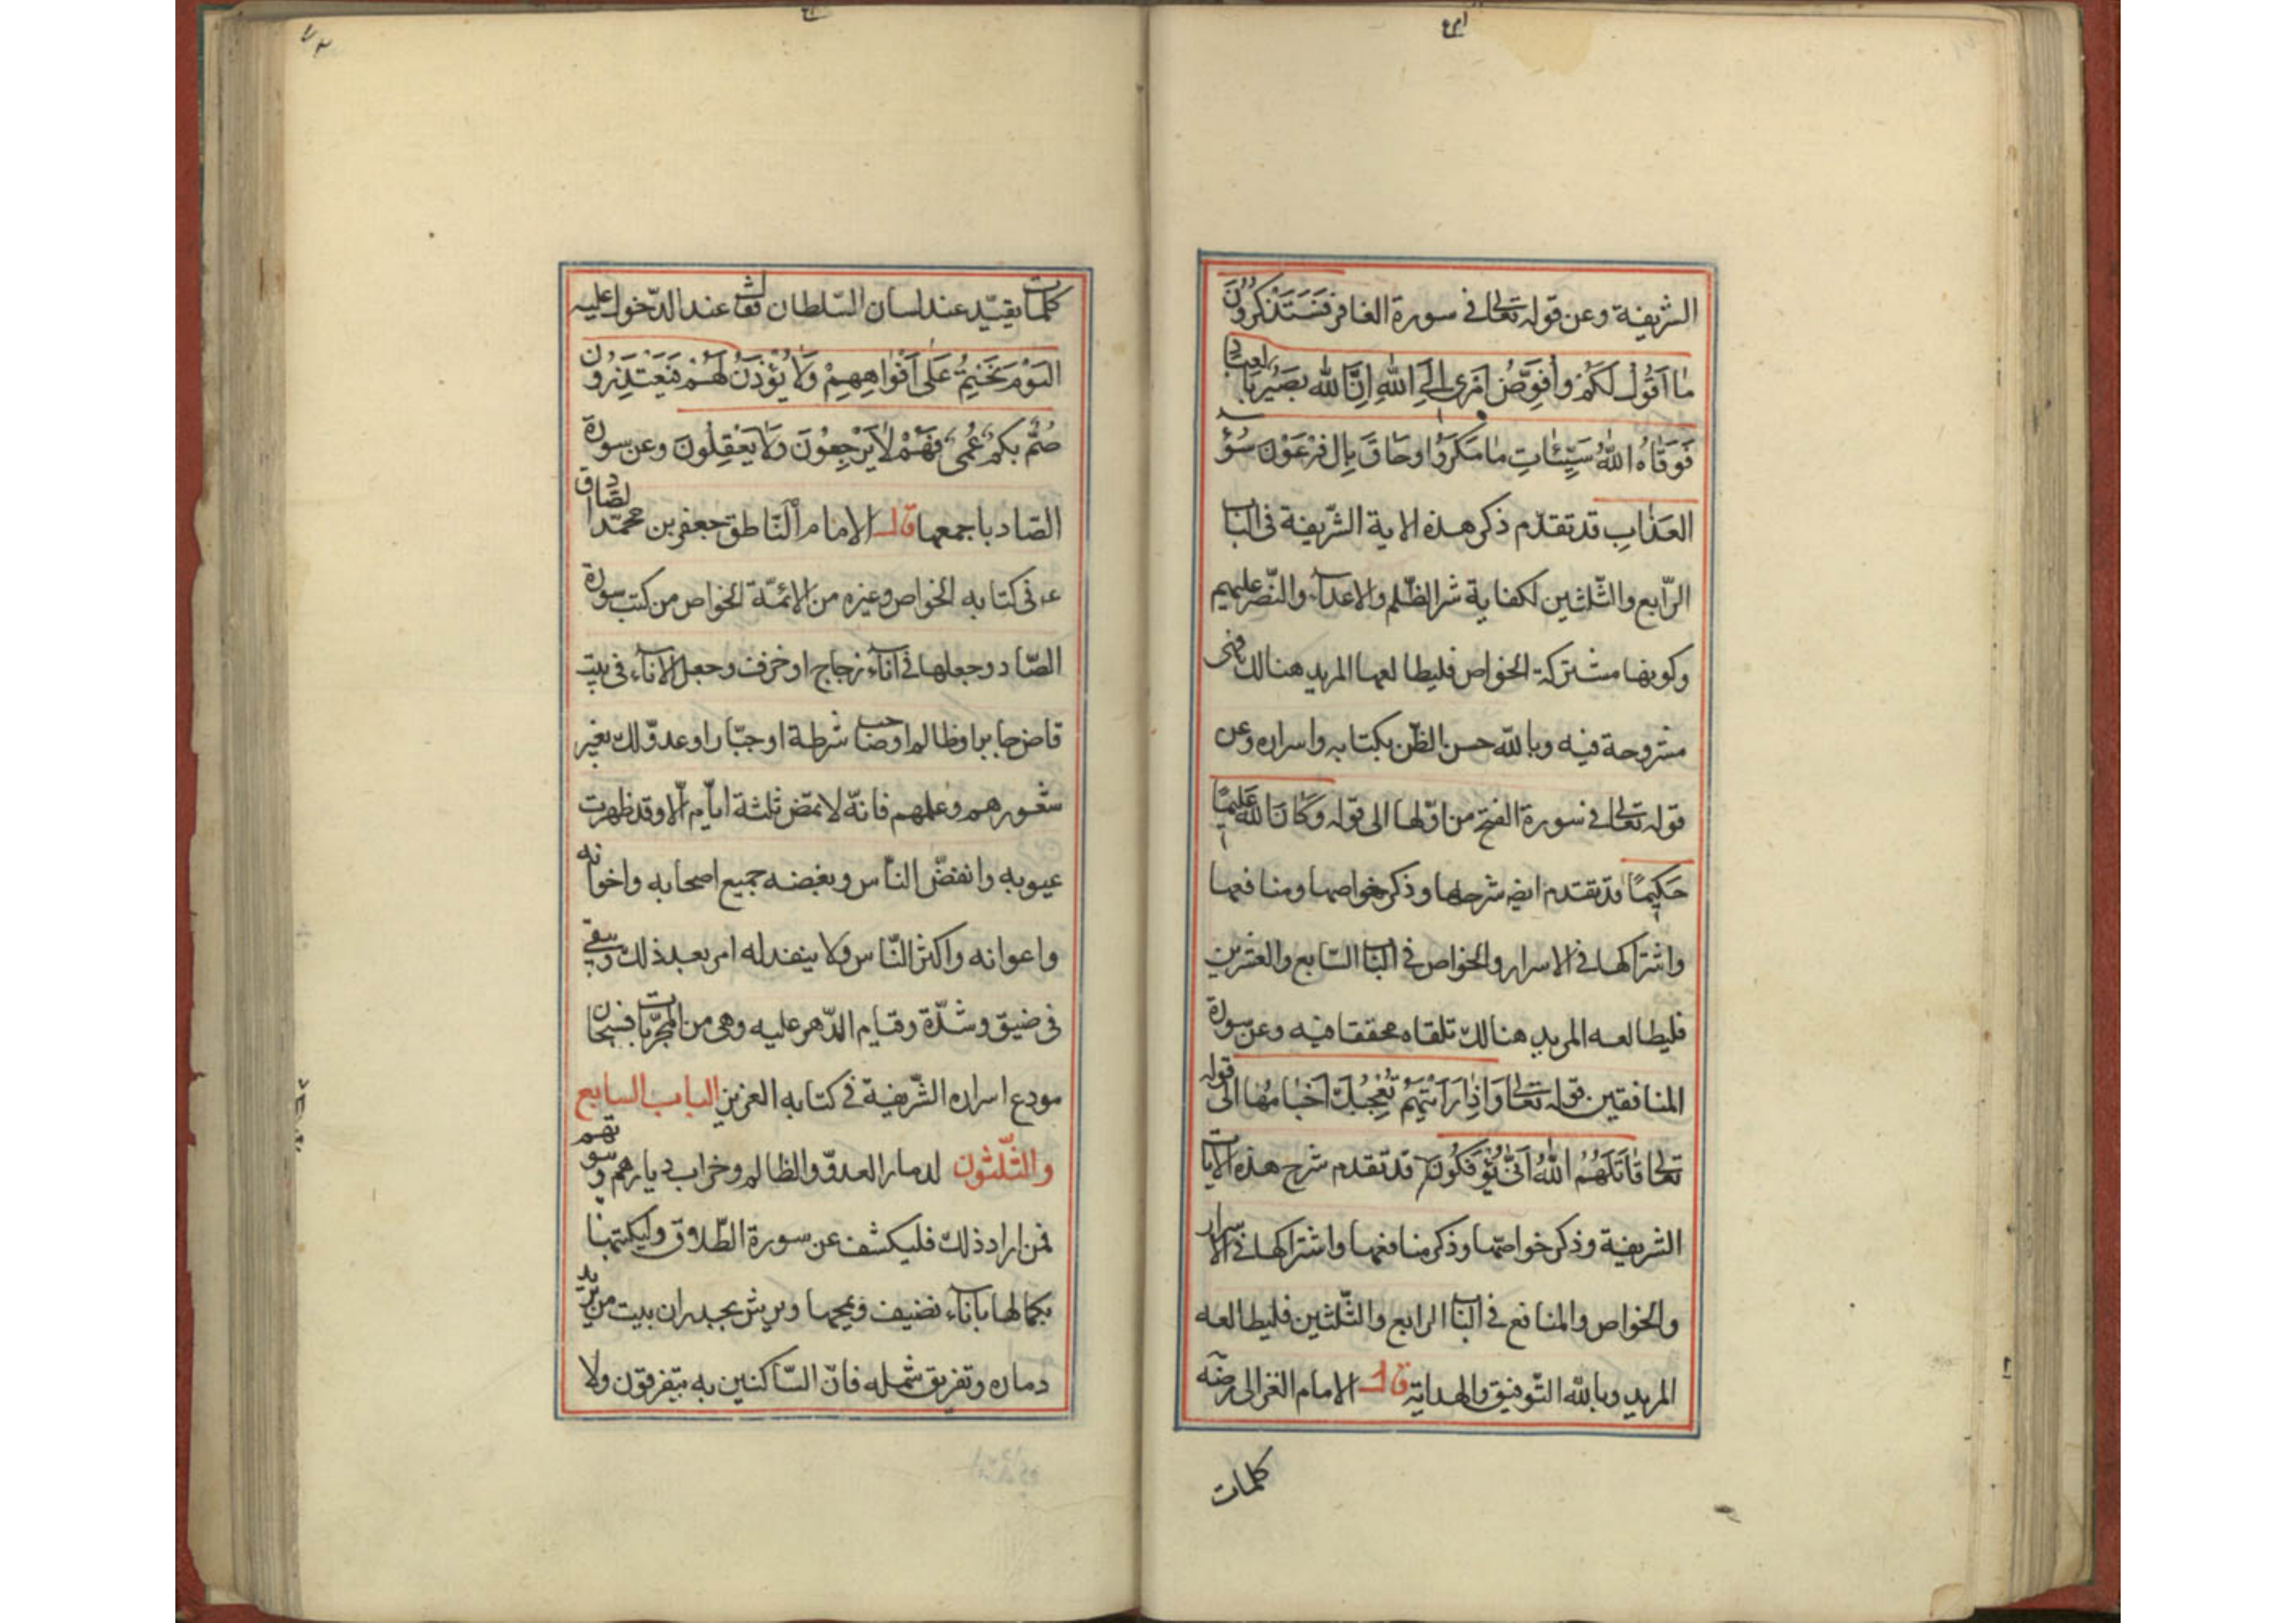 الشريفة وعن قوله تعالى فى سورة الغافر فَسَتَذْكُرُونَ
مٰا اَقُولُ لَكُمْ وَاُفَوِّضُ اَمْرى اِلَى اللهِ اِنَّ الله بَصيُرٌ بالعِبٰاد
فَوَقٰاهُ اللهُ سَيِّئٰاتِ مٰا مَكَرُوُا وحَاقَ بِاٰلِ فِرْعَوْنَ سُوۤءُ
العَذٰابِ قد تقدّم ذكر هذه الاية الشّريفة فى الباب
الرّابع والثّلثين لكفاية شر الظّلم والاعدآء والنّصر عليهم
وكونها مشتركة الخواص فليطالعها المريد هنالك فهى
مشروحة فيه وبالله حسن الظّن بكتابه واسراره وعن
قوله تعالى فى سورة الفتح من اوّلها الى قوله وَكٰانَ الله عَليمًا
حَكيمًا قد تقدم ايضا شرحها وذكر خواصها ومنافعها
واشتراكها فى الاسرار والخواص فى الباب السّابع والعشرين
فليطالعه المريد هنالك تلقاه محققا فيه وعن سورة
المنافقين قوله تعالى وَاِذٰا رَاَيْتَهُمْ تُعْجِبُكَ اَجْسٰامُهُمْ الى قوله
تعالى قٰاتَلَهُمُ اللهُ اَنّٰى يُؤْفَكُونَ قد تقدم شرح هذه الآيات
الشريفة وذكر خواصّها وذكر منافعها واشتراكها فى الاسرار
والخواص والمنافع فى الباب الرابع والثّلثين فليطالعه
المريد وبالله التّوفيق والهداية قال الامام الغزالى رضه
كلمات
كلمات يقيّد عند لسان السّلطان تقال عند الدّخول عليه
اليَوْمَ نَخْتِمُ عَلَى اَفْوٰاهِهِمْ وَلٰا يُؤْذَنُ لَهُمْ فَيَعْتَذِرُونَ
صُمٌّ بُكْمٌ عُمْىٌ فَهُمْ لٰا يَرْجِعُوْنَ وَلٰا يَعْقِلُونَ وعن سورة
الصّاد باجمعها قال الامام النّاطق جعفر بن محمّد الصّادق
ع فى كتابه الخواص وغيره من الائمّة الخواص من كتب سورة
الصّاد وجعلها فى انآء زجاج او خزف وجعل الانآء فى بيت
قاض جابر او ظالم او صاحب شرطة او جبّار او عدوّ لك بغير
شعورهم وعلمهم فانّه لا تمض ثلثة ايّام الّا وقد ظهرت
عيوبه وانفضّ النّاس وبغضه جميع اصحابه واخوانه
واعوانه واكثر النّاس ولا ينفد له امر بعد ذلك وبقى
فى ضيق وشدّة وقيام الدّهر عليه وهى من المجرّبات فسبحان
مودع اسراره الشّريفة فى كتابه العزيز الباب السابع
والثّلثون لدمار العدوّ والظالم وخراب ديارهم وبيوتهم
فمن اراد ذلك فليكشف عن سورة الطّلاق وليكتبها
بكمالها باناء نضيف ويمحها ويرش بجدران بيت من يريد
دماره وتفريق شمله فانّ السّاكنين به يتفرقون ولا